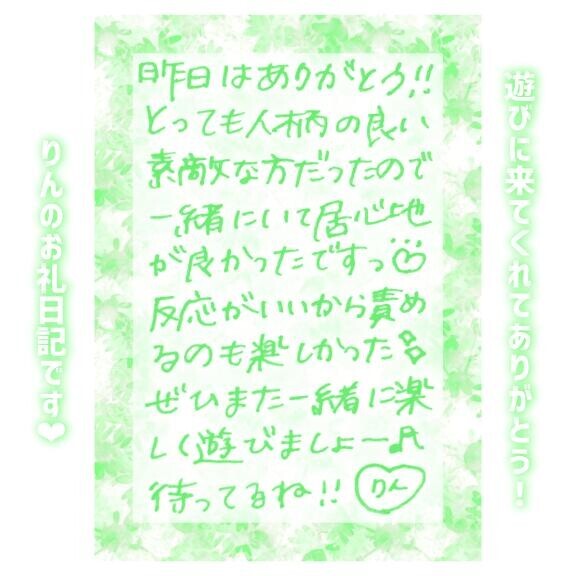 遊びに来てくれてありがとう!
昨日はありがとう!!
とっても人柄の良い
素敵な方だったので
一緒にいて居心地
が良かったですっ
反応がいいから責め
るのも楽しかった
ぜひまた一緒に楽
しく遊びましょー♬
待ってるね!! りん
りんのお礼日記です❤